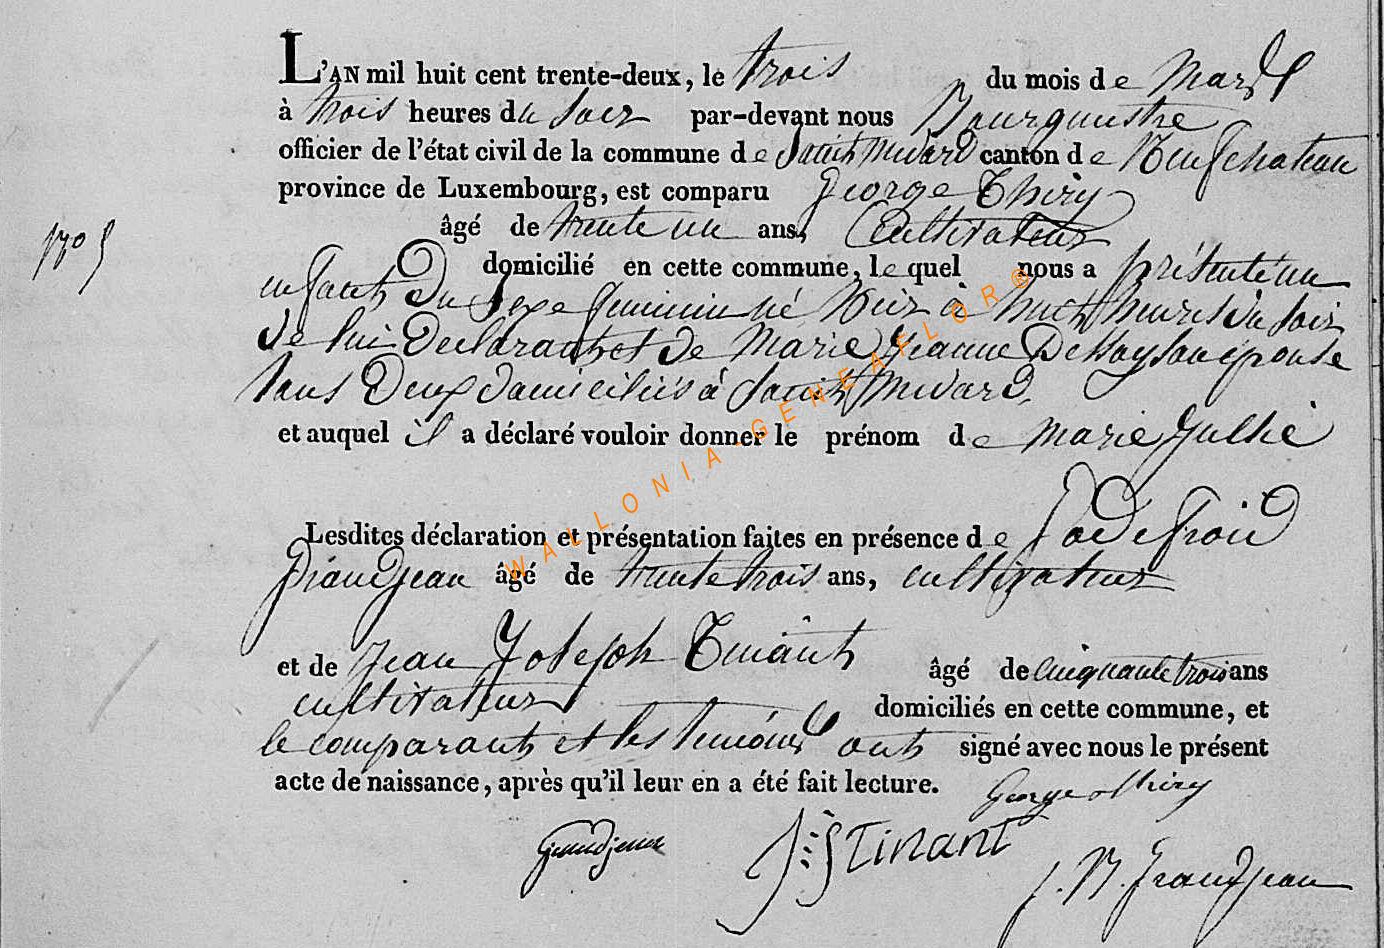 L'AN mil huit cent trente-deux, le trois du mois de Mars
à trois heures du soir par-devant nous Bourguestre
officier de l'état civil de la commune de Saint Médard canton de Neufchateau
province de Luxembourg, est comparu George Thiry
âgé de trente un ans, Cultivateur
domicilié en cette commune, lequel nous a présenté un
enfant du sexe feminin né hier à huit heures du soir
de lui Déclarant et de Marie Jeanne Dessoy son épouse
tous Deux domiciliés à Saint Médard.
et auquel il a déclaré vouloir donner le prénom de Marie Julie
Lesdites déclaration et présentation faites en présence de Godefroid
Grandjean âgé de trente trois ans, cultivateur
et de Jean Joseph Tinant âgé de cinquante trois ans
cultivateur domiciliés en cette commune, et
le comparant et les témoins ont signé avec nous le présent
acte de naissance, après qu'il leur en a été fait lecture.
George Thiry
Grandjean
J: J: Tinant
J. N. Grandjean
WALLONIA-GENEAFLOR®